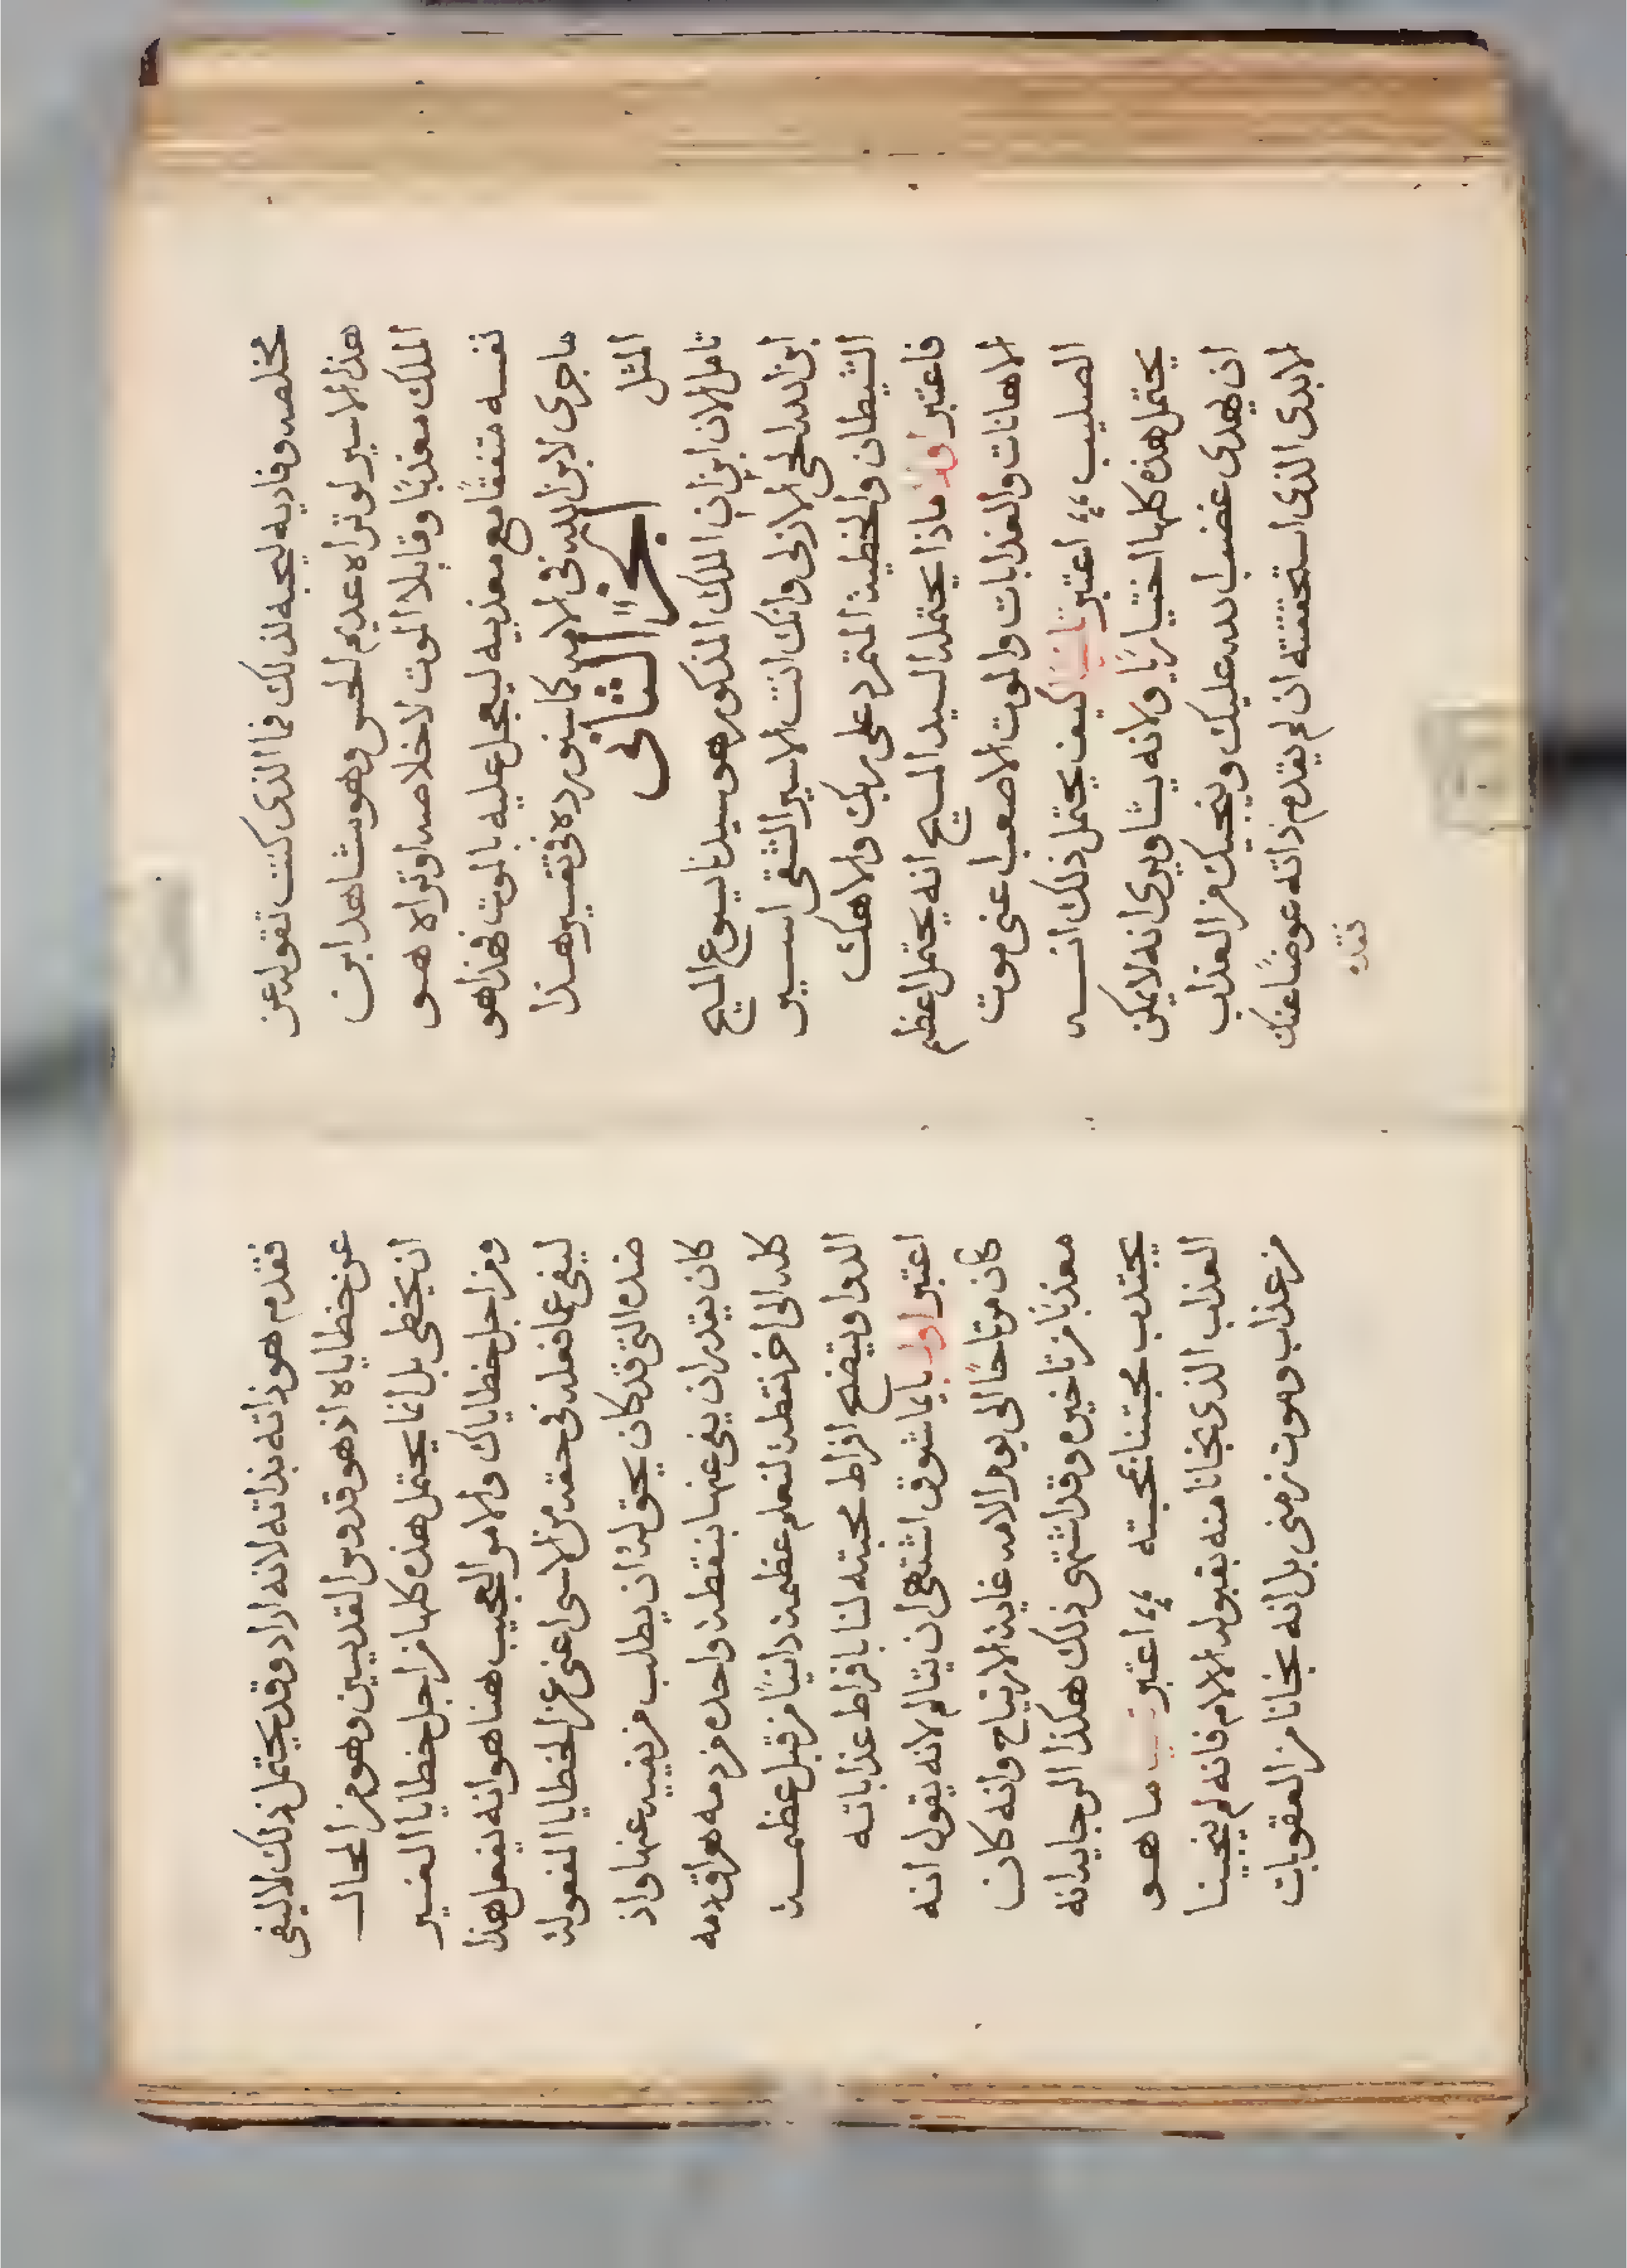 مخلصه وفاديه ليحبه لذلك فما الذى كنت تقوله عن
هذا الاسير لو تراه عديم الحس وهو مشاهد ابن
الملك معذبًا وقابلا الموت لاخلاصه او تراه هو
نفسه متفقًا مع معذبيه ليعجل عليه بالموت فهذا هو
ماجرى لابن الله فى الامه كما سنورده فى تفسير هذا
المثل
الجزء الثانى
تامل الان ابن ان الملك المذكور هو سيدنا يسوع المسيح
ابن الله الحى الازلى وانك انت الاسير الشقى اسير
الشيطان والخطية المتمرد على ربك والاهك
فاعتبر اولا ماذا يحتمله السيد المسيح انه يحتمل اعظم
الاهانات والعذابات والموت الاصعب اعنى موت
الصليب ،، اعتبر ثانيًا كيف يحتمل ذلك انه
يحتمل هذه كلها اختياريًا ولانه يشا ويرى انه لا يمكن
ان يهدى غضب الله عليك وينجيك من العذاب
الابدى الذى استحقيته ان لم يقدم ذاته عوضًا عنك
فقدم
فقدم هو ذاته بذاته لانه اراد وقد يحتمل ذلك لا ليفى
عن خطاياه اذ هو قدوس القديسين وهو من المحال
ان يخطى بل انما يحتمل هذه كلها من اجل خطايا الغير
ومن اجل خطاياك والامر العجيب هنا هو انه يفعل هذا
ليفى عما فعله فى حقه من الاسى اعنى عن الخطايا المفعولة
ضده التى قد كان يحق له ان يطلب من يفيه عنها واذ
كان يقدر ان يفى عنها بنقطة واحده من دمه هراق دمه
كله الى اخر نقطة لنعلم عظمة داينًا من قبل عظمة
الدوا ويتضح افراط محبته لنا بافراط عذاباته
اعتبر اولا بايما شوق اشتهى ان يتالم لانه يقول انه
كان مرتاحًا الى يوم الامه غاية الارتياح وانه كان
معذبًا من تاخيره وقد اشتهى ذلك هكذا الرجا يدانه
يجتذب محبتنا بمحبته ،، اعتبر ما هو
العذاب الذى نجانا منه بقبوله الالام فانه لم ينجينا
من عذاب وموت زمنى بل انه نجانا من العقوبات